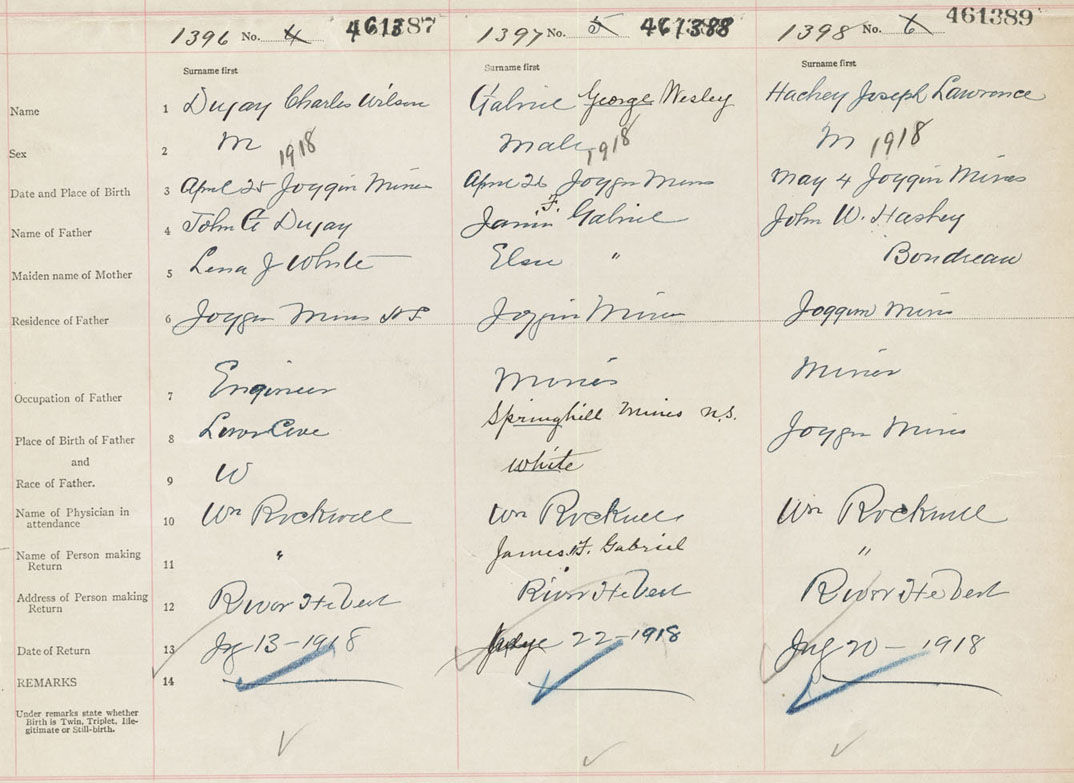 1396 No. 4 461387
1397 No. 5 461388
1398 No. 6 461389
Surname first Surname first Surname first
Name 1 Dugay Charles Wilson Gabriel George Wesley Hachey Joseph Lawrence
Sex 2 M 1918 Male 1918 M 1918
Date and Place of Birth 3 April 25 Joggin Mines April 26 Joggin Mines May 4 Joggin Mines
Name of Father 4 John A Dugay F. Gabriel John W. Hachey
Maiden name of Mother 5 Lena J White Elsie " Boudreau
Residence of Father 6 Joggin Mines N S Joggin Mines Joggin Mines
Occupation of Father 7 Engineer Miner Miner
Place of Birth of Father 8 Springhill Mines N.S. Joggin Mines
and
Race of Father. 9 W White
Name of Physician in attendance 10 Wm Rockwell Wm Rockwell Wm Rockwell
Name of Person making Return 11 " James F. Gabriel "
Address of Person making Return 12 River Hebert River Hebert River Hebert
Date of Return 13 13-1918 22-1918 20-1918
REMARKS 14
Under remarks state whether
Birth is Twin, Triplet, Ille-
gitimate or Still-birth.